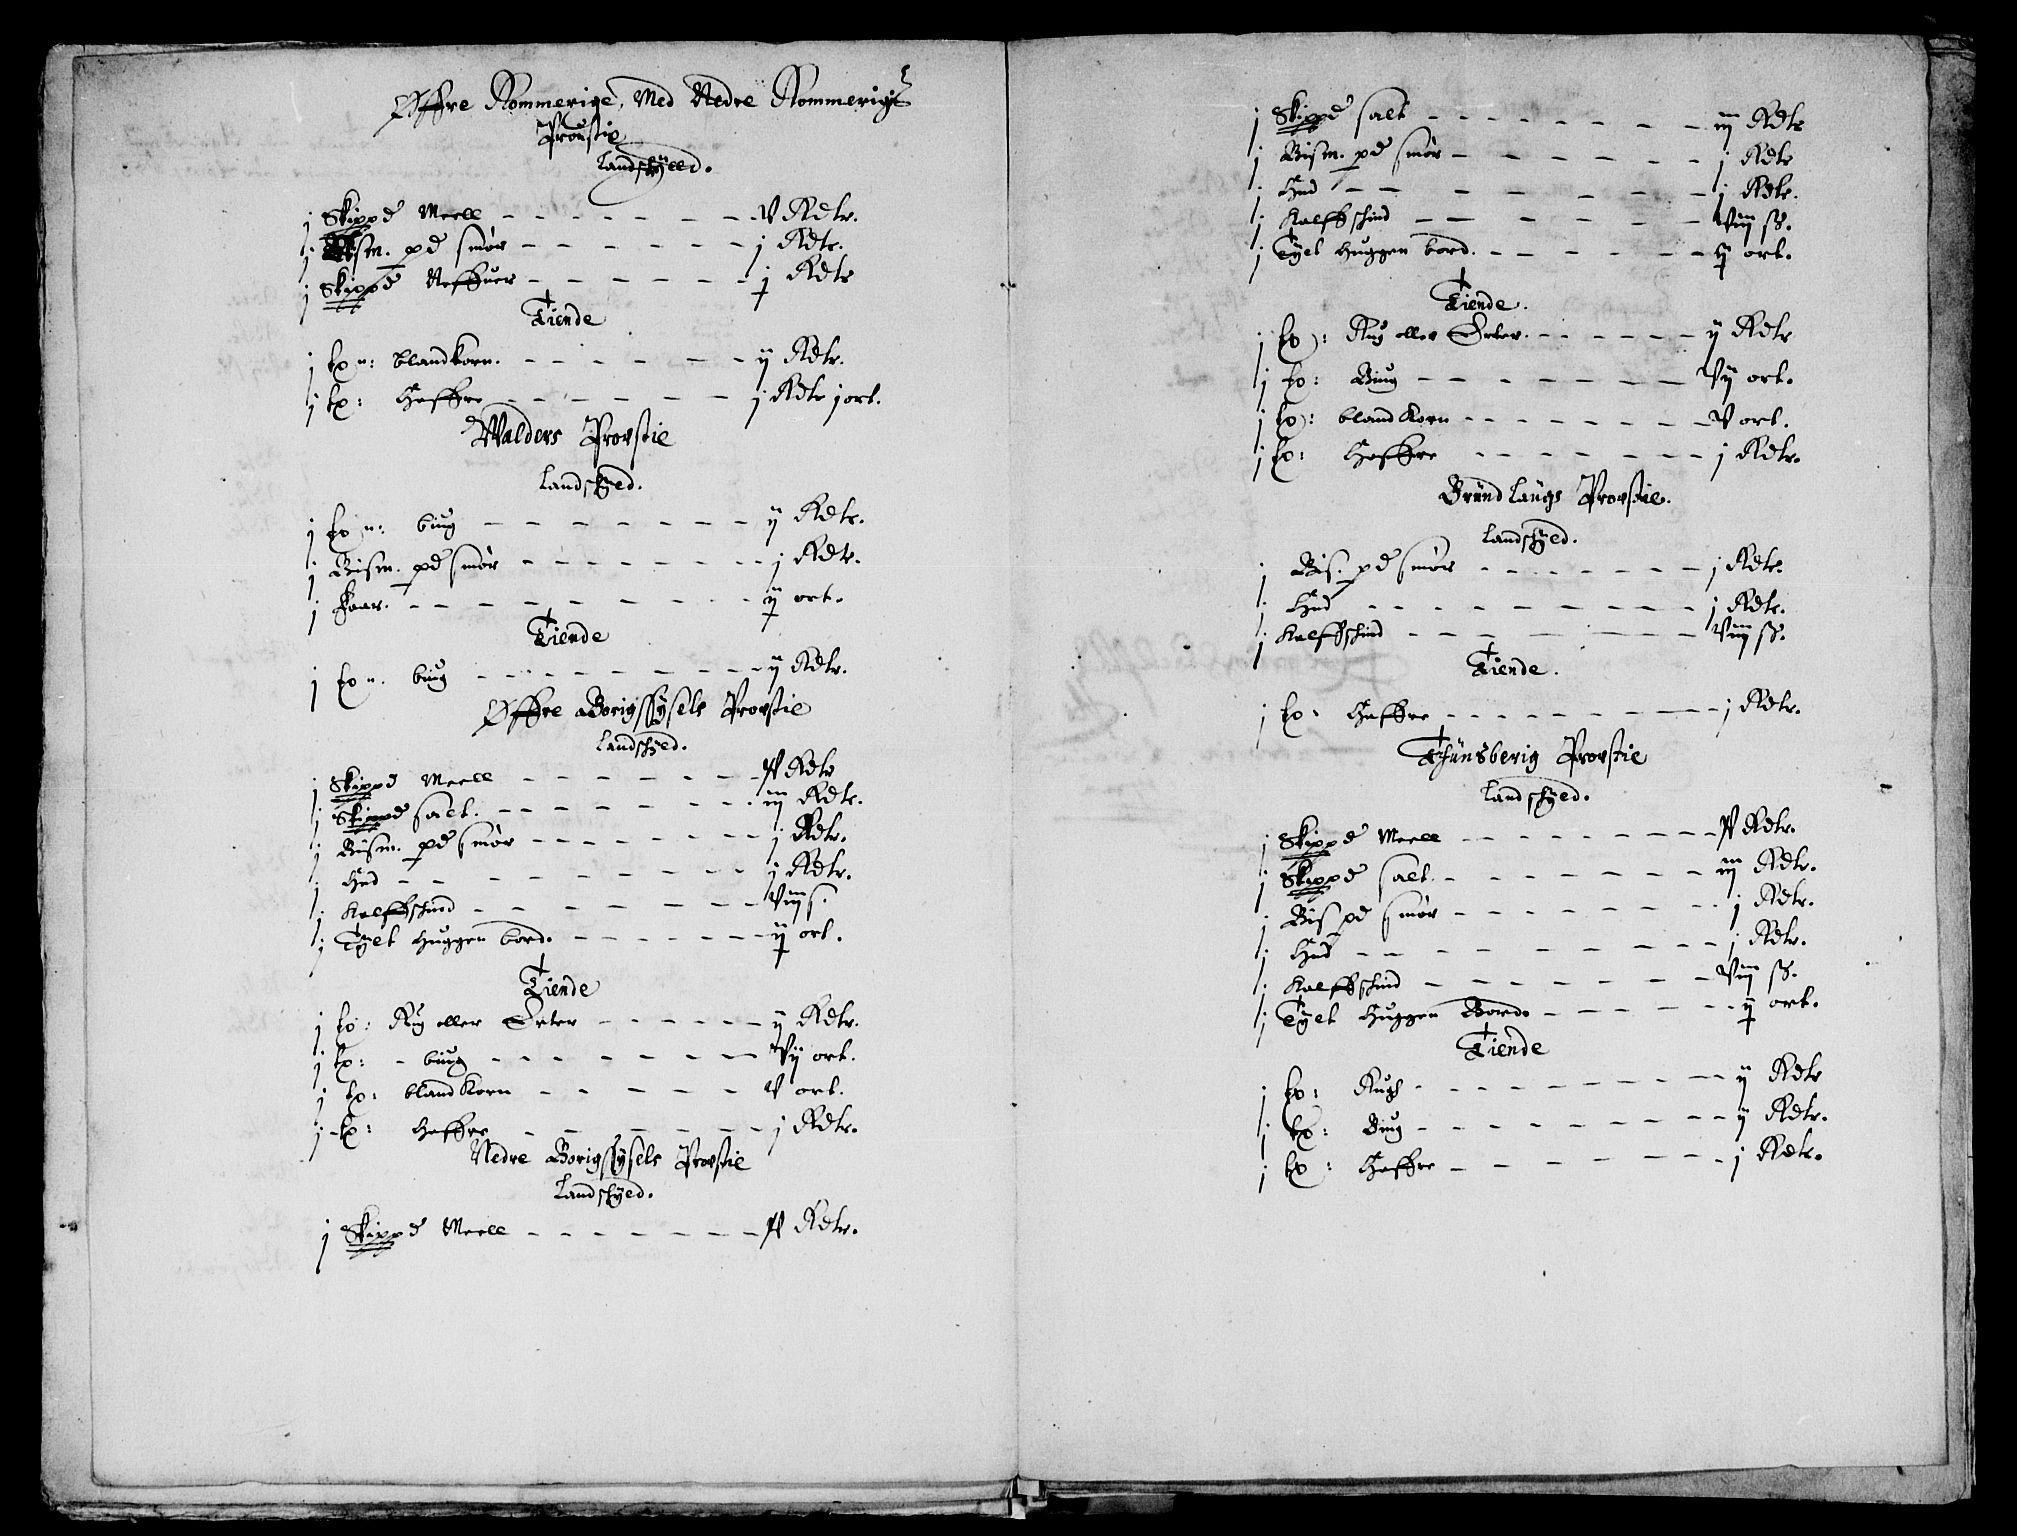 Øffre Rommerige, Med Nedre Rommerigs
Proustie
Landschÿld.
j Skippd Meell - - - - - - - V Rdlr.
j Bism. pd smør - - - - - - j Rdlr.
j Skippd Neffuer - - - - - - j Rdlr
Tiende
j tø n: blandkorn. - - - - - - ij Rdlr.
j tø: Haffre - - - - - - j Rdlr j ort.
Walders Prowstie
Landschÿld.
j tø n: biug - - - - - - - ij Rdlr.
j Bism. pd smør - - - - - - - j Rdlr.
j faar. - - - - - - - - ij ort.
Tiende
j tø n. biug - - - - - - - ij Rdlr.
Øffre Borigssÿsels Prowstie
Landschÿld.
j Skippd Meell - - - - - - IV Rdlr
j Skippd salt. - - - - - - iij Rdlr.
j Bism. pd smør - - - - - - j Rdlr.
j Hud - - - - - - - - j Rdlr.
j Kalffschind - - - - - - - Viij s.
j Tÿlt Huggen bord. - - - - - - ij ort.
Tiende
j tø: Rug eller Erter - - - - - ij Rdlr.
j tø: - biug - - - - - - - Vij ort.
j tø: bland Korn - - - - - V ort.
j tø: Haffre - - - - - - j Rdlr.
Nedre Borigssÿsels Prowstie
Landschÿld.
j Skippd Meell - - - - - - - IV Rdlr.
j Skippd salt - - - - - - - iij Rdlr
j Bism. pd smør - - - - - - j Rdlr
j Hud - - - - - - - - j Rdlr.
j Kalffschind - - - - - - - Viij ss.
j Tÿlt Huggen bord. - - - - - - ij ort.
Tiende.
j tø: Rug eller Erter. - - - - - ij Rdlr
j tø: Biug - - - - - - - Vij ort.
j tø: bland Korn - - - - - - - V ort.
j tø: Haffre - - - - - - - j Rdlr.
Brundlaugs Prowstie.
Landschÿld.
j Bis. pd smør - - - - - - - j Rdlr.
j Hud - - - - - - - - - j Rdlr.
j Kalffschind - - - - - - - Viij ss.
Tiende.
j tø: Haffre - - - - - - - - - j Rdlr.
Thunsberig Prowstie
Landschÿld.
j Skippd Meell - - - - - - - - IV Rdlr.
j Skippd salt. - - - - - - - iij Rdlr.
j Bis pd smør - - - - - - - j Rdlr.
j Hud - - - - - - - - - j Rdlr.
j Kalffschind - - - - - - - Viij ss.
j Tÿlt Huggen Bord. - - - - - - ij ort.
Tiende
j tø: Rugh - - - - - - - - - ij Rdlr
j tø: Biug - - - - - - - - ij Rdlr.
j tø: Haffre - - - - - - - j Rdlr.